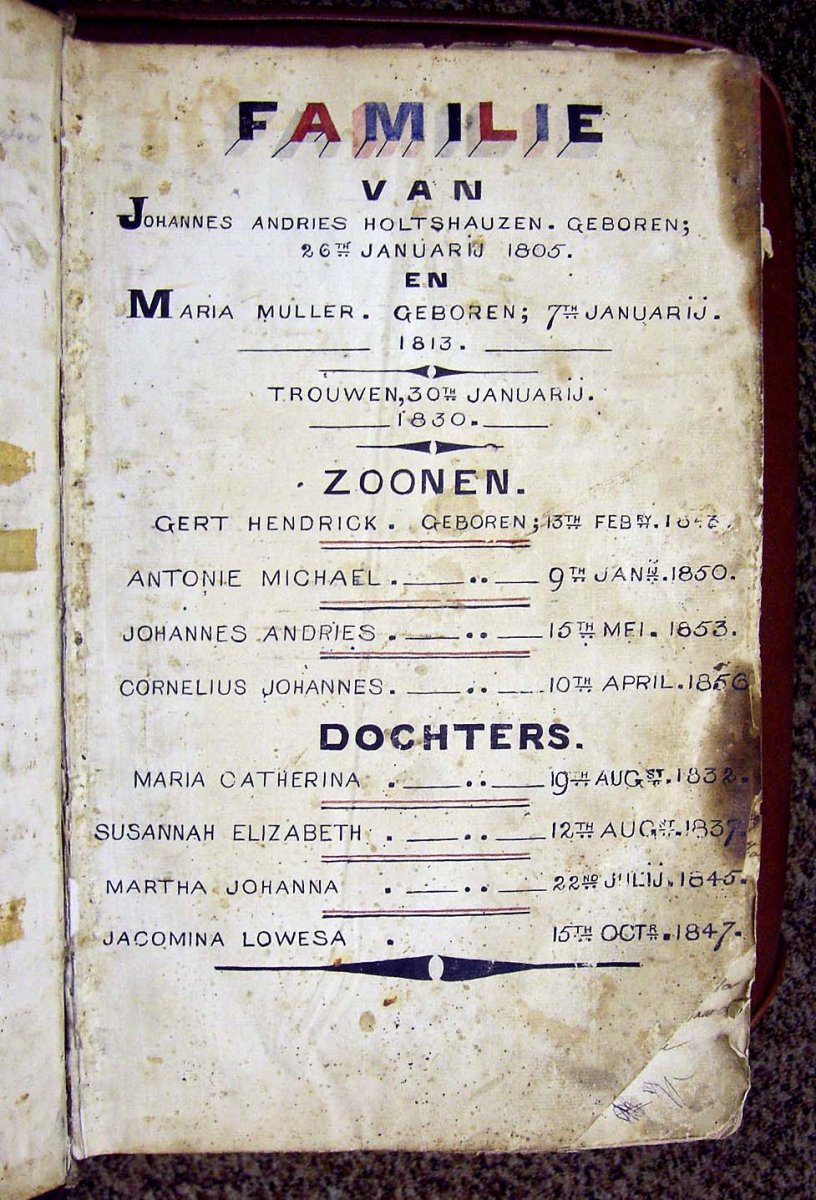 FAMILIE
VAN
JOHANNES ANDRIES HOLTSHAUZEN. GEBOREN;
26TH JANUARIJ 1805.
EN
MARIA MULLER. GEBOREN; 7TH JANUARIJ.
1813.
TROUWEN, 30TH JANUARIJ.
1830.
ZOONEN.
GERT HENDRICK. GEBOREN; 13TH FEBRY.
ANTONIE MICHAEL. — .. — 9TH JANIJ. 1850.
JOHANNES ANDRIES. — .. — 15TH MEI. 1853.
CORNELIUS JOHANNES. — .. — 10TH APRIL. 1856
DOCHTERS.
MARIA CATHERINA . — .. — 19TH AUGST. 1832.
SUSANNAH ELIZABETH . — .. — 12TH AUGST. 1837.
MARTHA JOHANNA . — .. — 22ND JULIJ. 1845.
JACOMINA LOWESA . 15TH OCTR. 1847.